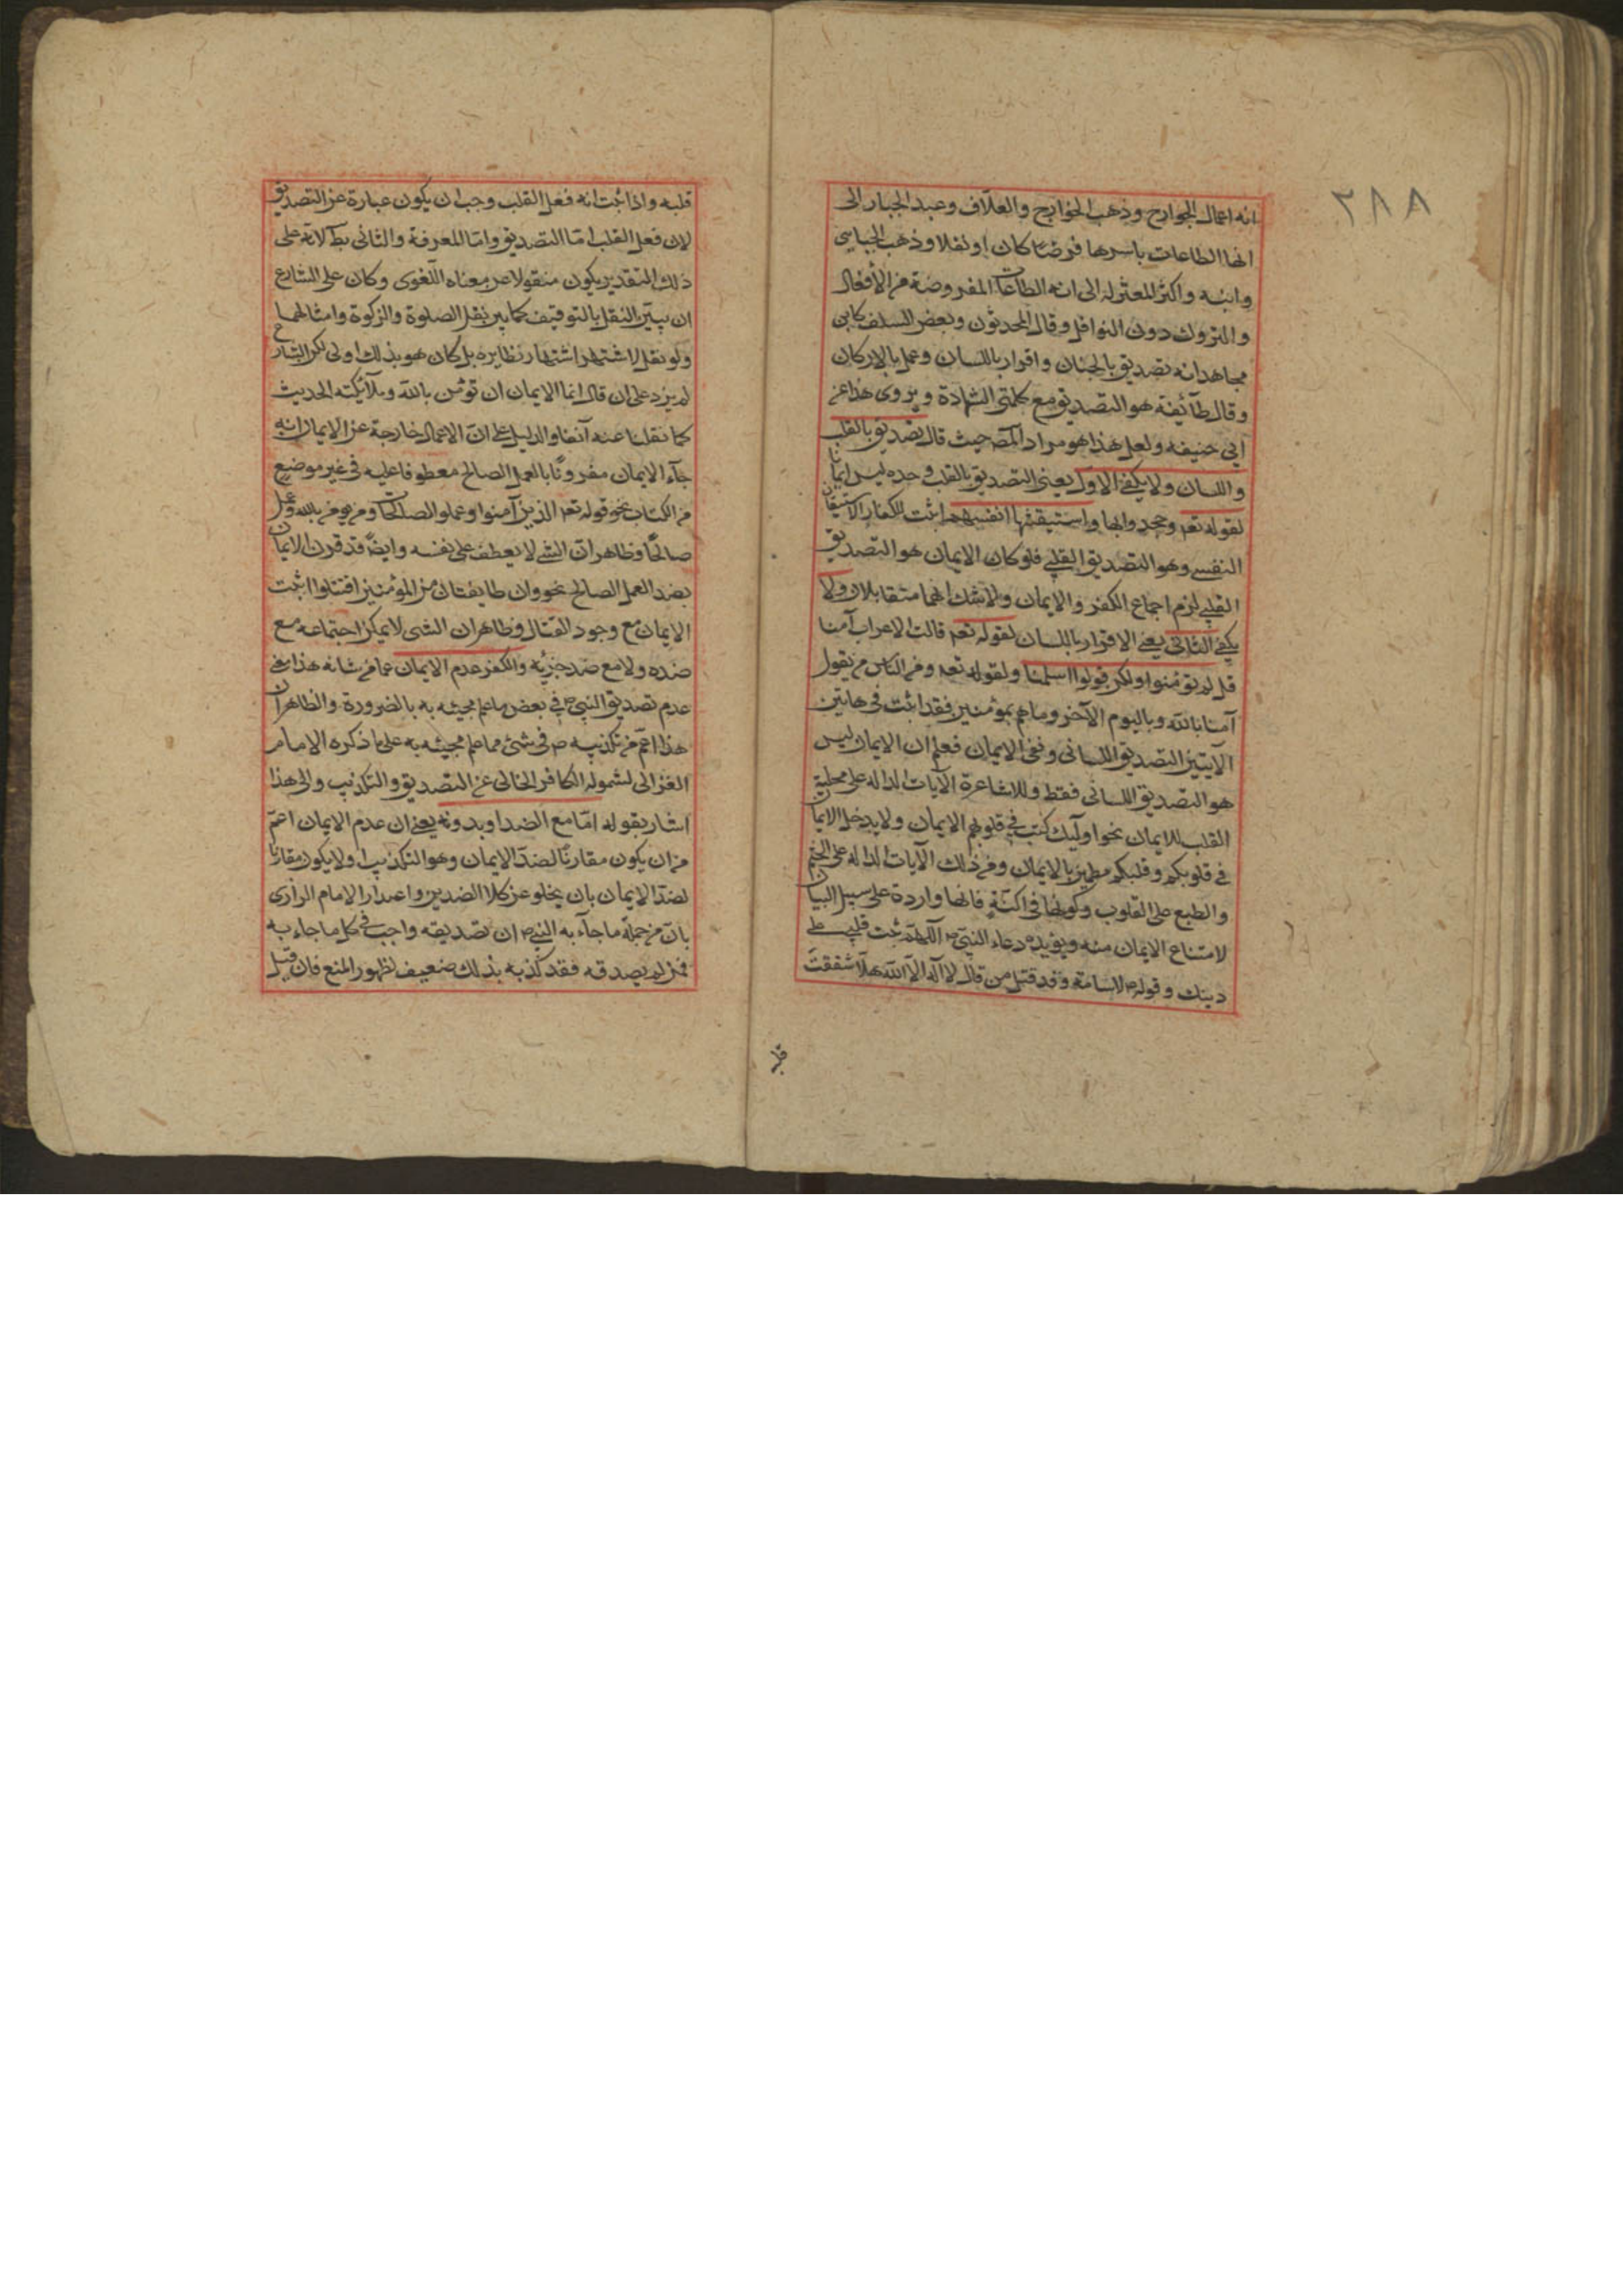 ٣٨٨
انه اعمال الجوارح وذهب الخوارج والعلاف وعبد الجبار الى
انها الطاعات باسرها فرضا كان او نفلا وذهب الجبايى
وابنه واكثر المعتزله الى انه الطاعات المفروضة من الأفعال
والتروك دون النوافل وقال المحدثون وبعض السلف كابن
مجاهد انه تصديق بالجنان واقرار باللسان وعمل بالاركان
وقال طآئفة هو التصديق مع كلمتى الشهادة ويروى هذا عن
ابى حنيفه ولعل هذا هو مراد المصـ حيث قال تصديق بالقلب
واللسان ولا يكفى الاول يعنى التصديق بالقلب وحده ليس ايمانا
لقوله تعـ وجحدوا بها واستيقنتها انفسهم اثبت للكفار الاستيقان
النفسى وهو التصديق القلبى فلو كان الايمان هو التصديق
القلبى لزم اجتماع الكفر والايمان ولا شك انهما متقابلان ولا
يكفى الثانى يعنى الاقرار باللسان لقوله تعـ قالت الاعراب آمنا
قل لم تؤمنوا ولكن قولوا اسلمنا ولقوله تعـ ومن الناس من يقول
آمنا بالله وباليوم الآخر وما هم بمؤمنين فقد اثبت فى هاتين
الآيتين التصديق اللسانى ونفى الايمان فعلم ان الايمان ليس
هو التصديق اللسانى فقط وللاشاعرة الآيات الداله على محلية
القلب للايمان نحو اولٓئك كتب فى قلوبهم الايمان ولا يدخل الايمان
فى قلوبكم وقلبكم مطمئن بالايمان ومن ذلك الآيات الداله على الختم
والطبع على القلوب وكونها فى اكنّة فانها واردة على سبيل البيان
لامتناع الايمان منه ويؤيده دعاء النبىّ ص اللهمّ ثبت قلبى على
دينك وقوله ص لاسامة وقد قتل من قال لا اله الا الله هلّا شققت
قلبه
قلبه واذا ثبت انه فعل القلب وجب ان يكون عبارة عن التصديق
لان فعل القلب امّا التصديق وامّا المعرفة والثانى بط لانه على
ذلك التقدير يكون منقولا عن معناه اللغوى وكان على الشارع
ان يبيّن النقل بالتوقيف كما بين نقل الصلوة والزكوة وامثالهما
ولو نقل لاشتهر اشتهار نظايره بل كان هو بذلك اولى لكن الشارع
لم يزد على ان قال انما الايمان ان تؤمن بالله وملآئكته الحديث
كما نقلنا عنه آنفا والدليل على انّ الاعمال خارجة عن الايمان انه
جآء الايمان مقرونًا بالعمل الصالح معطوفا عليه فى غير موضع
من الكتاب نحو قوله تعـ الذين آمنوا وعملوا الصالحات ومن يؤمن بالله وعمل
صالحًا وظاهر انّ الشئ لا يعطف على نفسه وايضًا قد قرن الايمان
بضد العمل الصالح نحو وان طايفتان من المؤمنين اقتتلوا اثبت
الايمان مع وجود القتال وظاهر ان الشى لا يمكن اجتماعه مع
ضده ولا مع ضد جزئه والكفر عدم الايمان عما من شانه هذا معنى
عدم تصديق النبى ص فى بعض ما علم مجيئه به بالضرورة والظاهر ان
هذا اعمّ من تكذيبه ص فى شئ مما علم مجيئه به على ما ذكره الامام
الغزالى لشموله الكافر الخالى عن التصديق والتكذيب والى هذا
اشار بقوله امّا مع الضد او بدونه يعنى ان عدم الايمان اعمّ
من ان يكون مقارنًا لضدّ الايمان وهو التكذيب او لا يكون مقارنًا
لضدّ الايمان بان يخلو عن كلا الضدين واعتذار الامام الرازى
بانّ من جملة ما جآء به النبى ص ان تصديقه واجب فى كل ما جاء به
فمن لم يصدقه فقد كذبه بذلك ضعيف لظهور المنع فان قيل